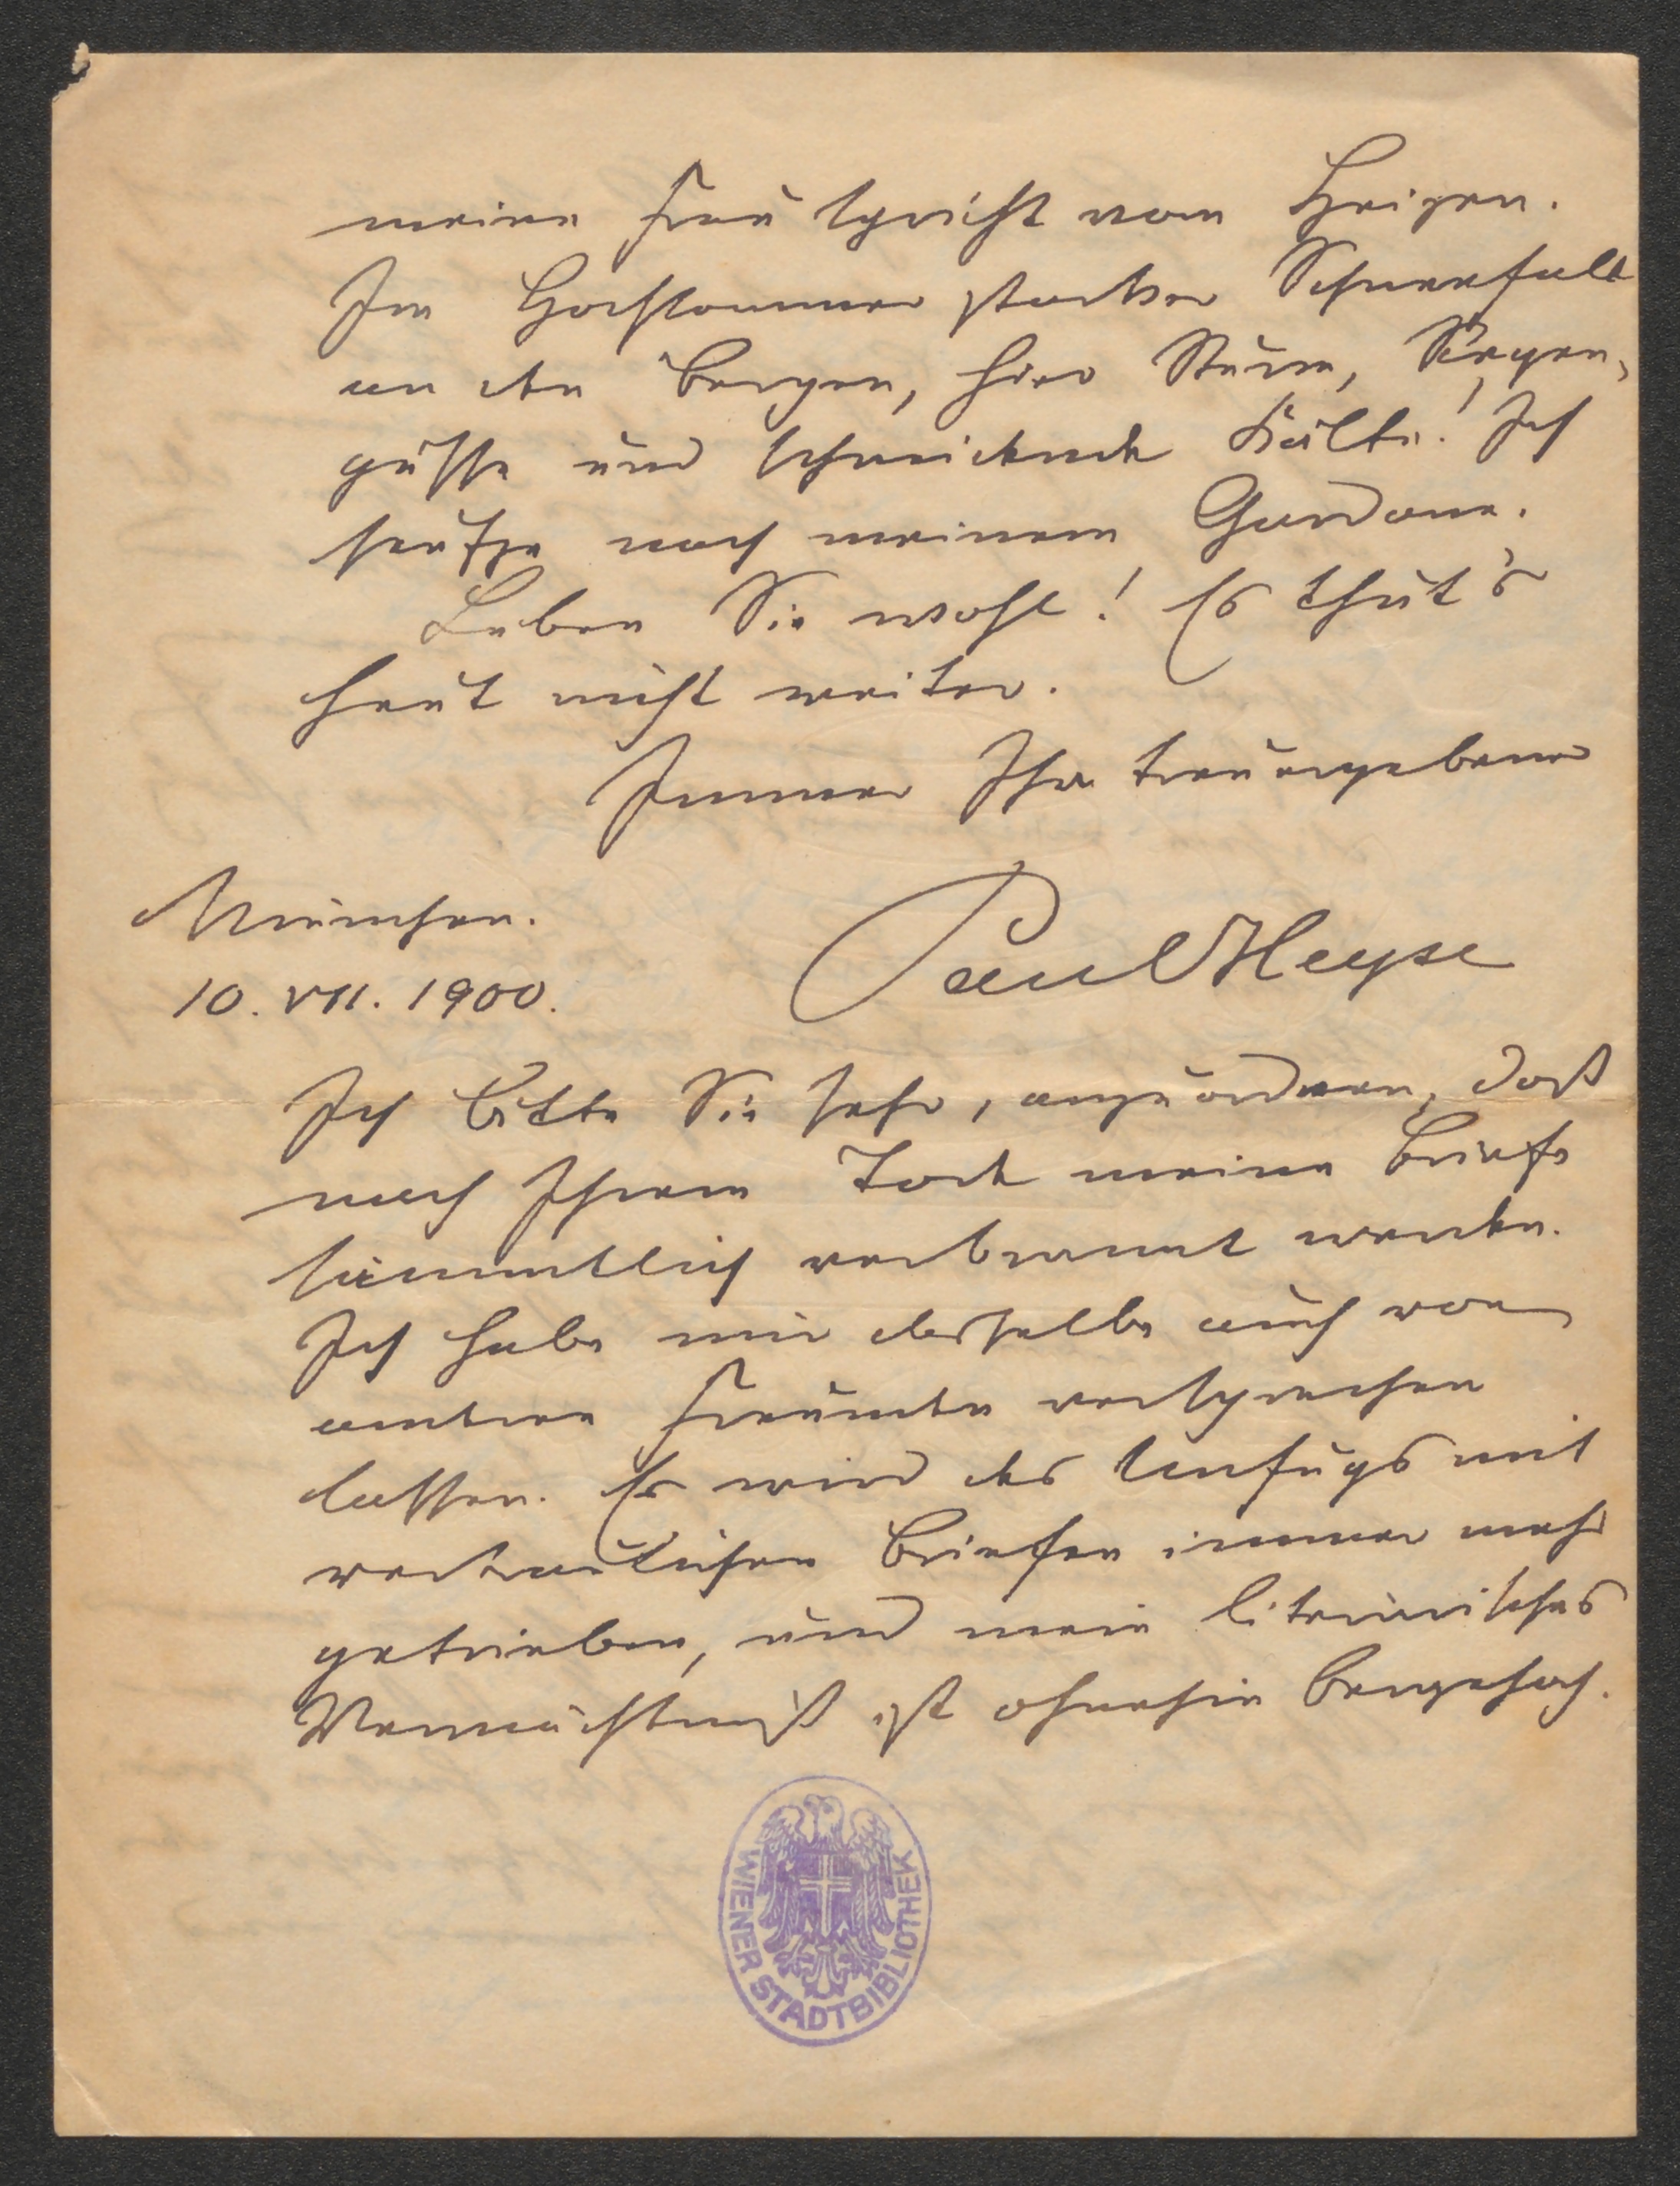 meine Frau spricht vom Heizen.
Im Hochsommer starker Schneefall
an den Bergen, hier Sturm, Regen-
güsse und schneidende Kälte! Ich
seufze nach meinem Gardone.
Leben Sie wohl! Es thut's
heut nicht weiter.
Immer Ihr treuergebener
München.
Paul Heyse
10. VII. 1900.
Ich bitte Sie sehr, anzuordnen, daß
nach Ihrem Tode meine Briefe
sämmtlich verbrannt werden.
Ich habe mir dasselbe auch von
andren Freunden versprechen
lassen. Es wird des Unfugs mit
vertraulichen Briefen immer mehr
getrieben, und mein literarisches
Vermächtniß ist ohnehin bergehoch.
WIENER STADTBIBLIOTHEK